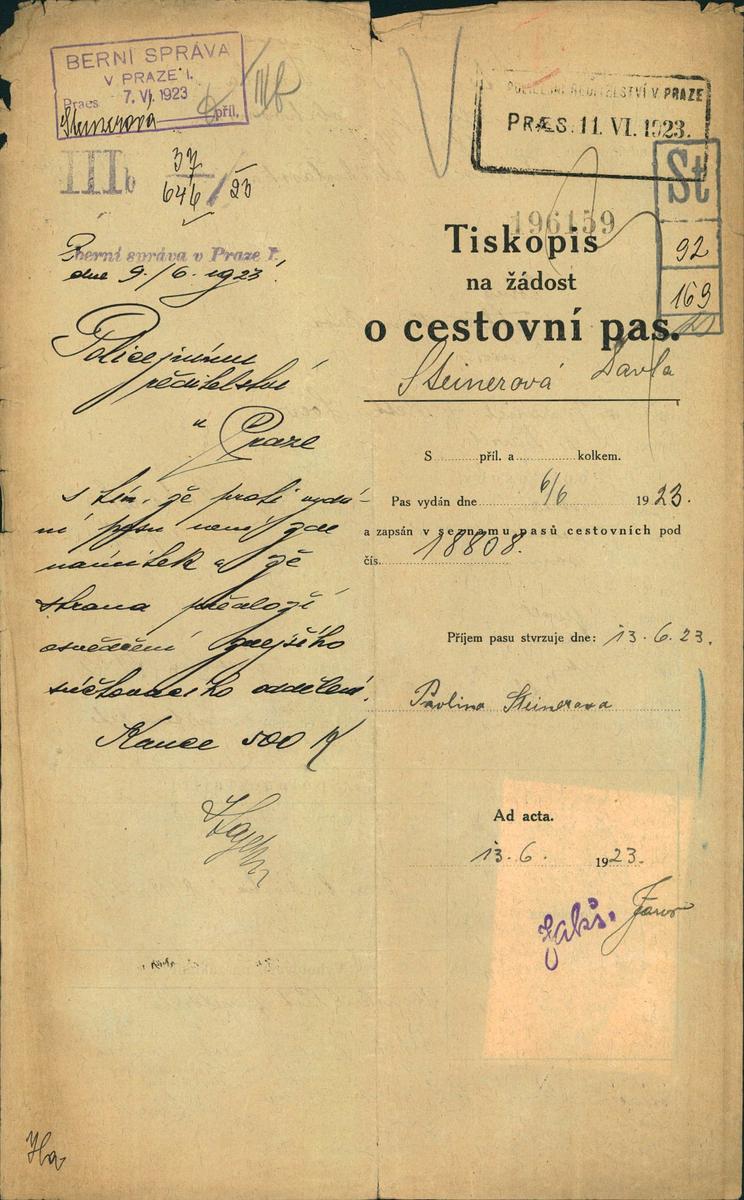 BERNÍ SPRÁVA
V PRAZE I.
Praes. 7. VI. 1923
Steinerová příl.
IIIb
IIIb 37
646 / 23
Berní správa v Praze I.
dne 9./6. 1923.
Policejnímu
ředitelství
v Praze
s tím, že proti vydá-
ní pasu není zde
námitek a že
strana předloží
osvědčení zdejšího
súčtovacího oddělení.
Kauce 500 Kč
Ha
POLICEJNÍ ŘEDITELSTVÍ V PRAZE
PRÆS. 11. VI. 1923.
St
92
169
196159
Tiskopis
na žádost
o cestovní pas.
Steinerová Pavla
S příl. a kolkem.
Pas vydán dne 6/6 1923.
a zapsán v seznamu pasů cestovních pod
čís. 18808.
Příjem pasu stvrzuje dne: 13. 6. 23.
Pavlina Steinerova
Ad acta.
13. 6. 1923.